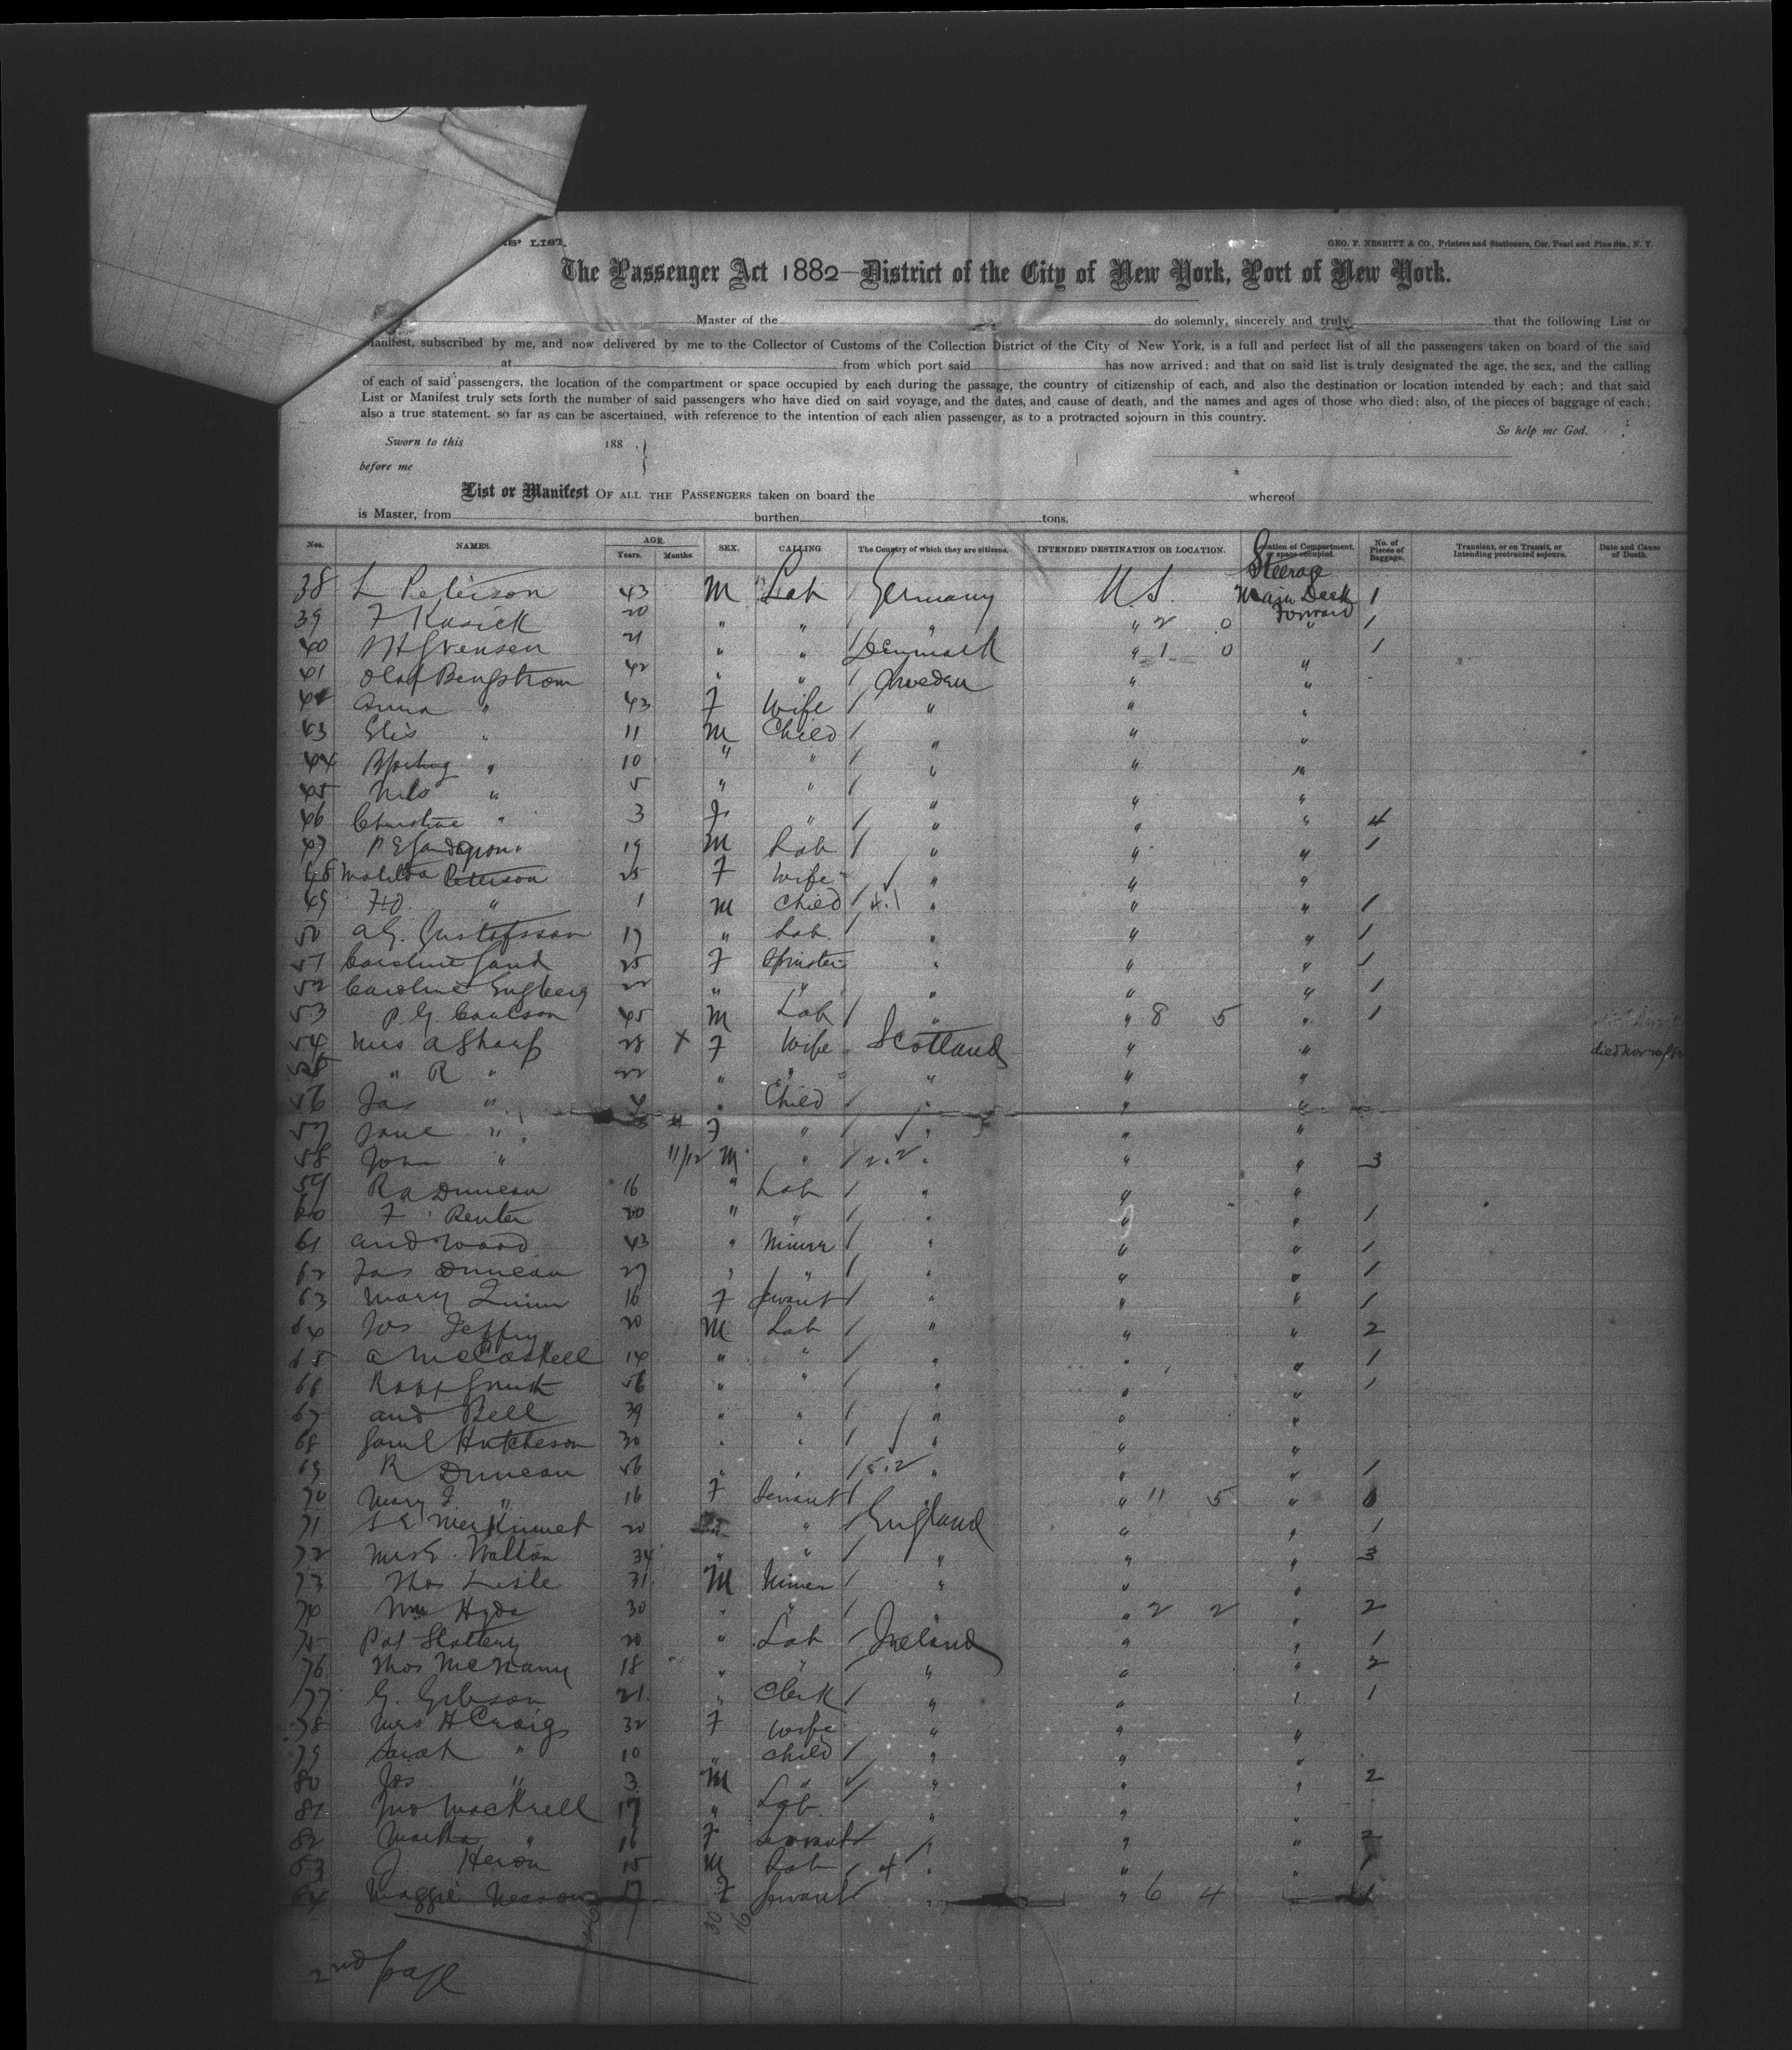 RS' LIST.
GEO. F. NESBITT & CO., Printers and Stationers, Cor. Pearl and Pine Sts., N. Y.
The Passenger Act 1882—District of the City of New York, Port of New York.
Master of the do solemnly, sincerely and truly that the following List or
Manifest, subscribed by me, and now delivered by me to the Collector of Customs of the Collection District of the City of New York, is a full and perfect list of all the passengers taken on board of the said
at from which port said has now arrived; and that on said list is truly designated the age, the sex, and the calling
of each of said passengers, the location of the compartment or space occupied by each during the passage, the country of citizenship of each, and also the destination or location intended by each; and that said
List or Manifest truly sets forth the number of said passengers who have died on said voyage, and the dates, and cause of death, and the names and ages of those who died; also, of the pieces of baggage of each;
also a true statement, so far as can be ascertained, with reference to the intention of each alien passenger, as to a protracted sojourn in this country.
So help me God.
Sworn to this 188
before me
List or Manifest OF ALL THE PASSENGERS taken on board the whereof
is Master, from burthen tons.
Nos. NAMES. AGE. Years. Months. SEX. CALLING The Country of which they are citizens. INTENDED DESTINATION OR LOCATION. Location of Compartment, or space occupied. No. of Pieces of Baggage. Transient, or on Transit, or Intending protracted sojourn. Date and Cause of Death.
Steerage
38 L Peterson 43 M Lab / Germany U.S. Main Deck Forward 1
39 F Kasick 20 " " " " 2 0 " 1
40 21 " " Denmark " 1 0 1
41 Olaf Bengstrom 42 " " / Sweden " "
42 Anna " 43 F Wife / " " "
43 " 11 M Child / " " "
44 " 10 " " / " " "
45 Nils " 5 " " / " " "
46 Christine " 3 F " / " " " 4
47 19 M Lab / " " " 1
48 Matilda Peterson 25 F Wife " " "
49 " 1 M Child / 4.1 " " " 1
50 A G. Gustafsson 17 " Lab. / " " " 1
51 Caroline 25 F Spinster " " " 1
52 Caroline Engberg 22 " " " " " 1
53 P. G. Carlson 45 M Lab / " " 8 5 " 1
54 Mrs A Sharp 28 X F Wife Scotland " "
55 " R " 22 " " " " "
56 Jas " " Child / " " "
57 Jane " F " / " " "
58 John " 11/12 M " / 2.2 " " " 3
59 R A Duncan 16 " Lab / " " "
60 F Renter 20 " " / " " " 1
61 And Wood 43 " Miner / " " " 1
62 Jas Duncan 27 " " / " " " 1
63 Mary Quinn 16 F Servant / " " " 1
64 Jos Jeffry 20 M Lab / " " " 2
65 A McCaskell 14 " " / " " " 1
66 Robt Smith 56 " " / " " " 1
67 And Bell 39 " " / " " "
68 Saml Hutcheson 30 " " / " " "
69 R Duncan 56 " " / 5.2 " " " 1
70 Mary J. " 16 F Servant / " " 11 5 "
71 20 " / England " " 1
72 Mrs E. Walton 34 " " / " " " 3
73 Thos Lisle 31 M Miner / " " "
74 Wm Hyde 30 " " / " " 2 2 " 2
75 Pat Slattery 20 " Lab / Ireland " " 1
76 Thos 18 " " " " " 2
77 G. Gibson 21 " Clerk / " " " 1
78 Mrs H Craig 32 F Wife " " "
79 Sarah " 10 " Child / " " "
80 Jos " 3 M " / " " " 2
81 Jno Mackrell 17 " Lab. " " "
82 Martha " 16 F Servant / " " "
83 J Heron 15 M Lab / 4 " " "
84 Maggie 17 F Servant / " " 6 4 " 1
30 16
2nd page